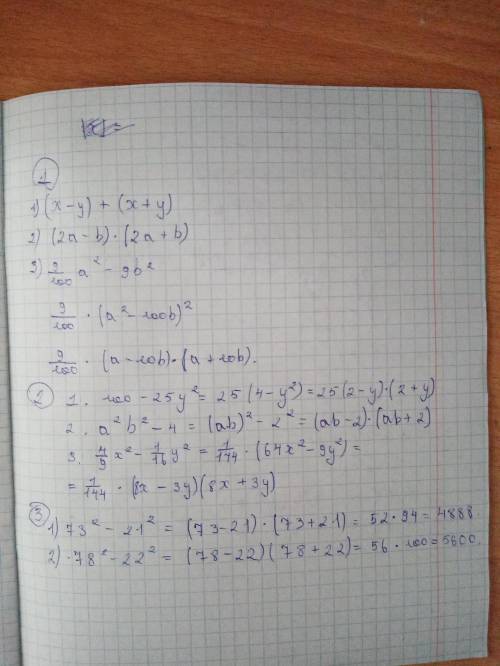 1
1) (x-y) + (x+y)
2) (2a-b)·(2a+b)
3) 9/100 a² - 9b²
9/100 · (a² - 100b)²
9/100 · (a-10b)·(a+10b).
2 1. 100 - 25y² = 25(4-y²) = 25(2-y)·(2+y)
2. a²b² - 4 = (ab)² - 2² = (ab-2)·(ab+2)
3. 4/9 x² - 1/16 y² = 1/144 · (64x² - 9y²) =
= 1/144 · (8x - 3y)(8x + 3y)
3 1) 73² - 21² = (73-21)·(73+21) = 52·94 = 4888.
2) 78² - 22² = (78-22)(78+22) = 56·100 = 5600.